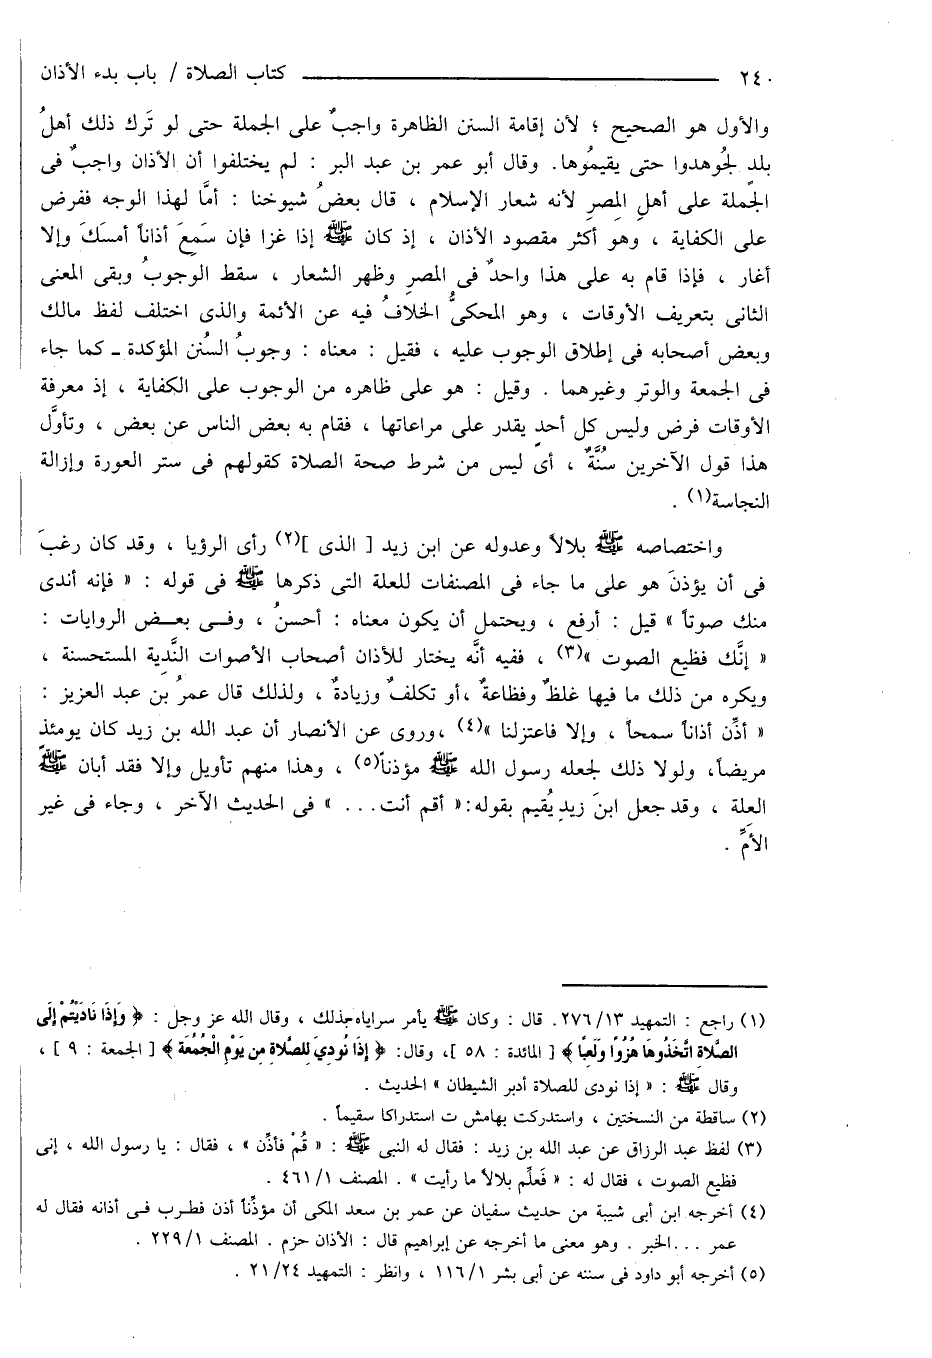 ٢٤٠ كتاب الصلاة / باب بدء الأذان
والأول هو الصحيح ؛ لأن إقامة السنن الظاهرة واجبٌ على الجملة حتى لو تَرك ذلك أهلُ
بلدٍ لجُوهدوا حتى يقيمُوها. وقال أبو عمر بن عبد البر : لم يختلفوا أن الأذان واجبٌ فى
الجملة على أهلِ المِصرِ لأنه شعار الإسلام ، قال بعضُ شيوخنا : أمَّا لهذا الوجه ففرض
على الكفاية ، وهو أكثر مقصود الأذان ، إذ كان ﷺ إذا غزا فإن سَمِعَ أذاناً أمسَكَ وإلا
أغار ، فإذا قام به على هذا واحدٌ فى المصرِ وظهر الشعار ، سقط الوجوبُ وبقى المعنى
الثانى بتعريف الأوقات ، وهو المحكىُّ الخلافُ فيه عن الأئمة والذى اختلف لفظ مالك
وبعض أصحابه فى إطلاق الوجوب عليه ، فقيل : معناه : وجوبُ السُنن المؤكدة ـ كما جاء
فى الجمعة والوتر وغيرهما . وقيل : هو على ظاهره من الوجوب على الكفاية ، إذ معرفة
الأوقات فرض وليس كل أحدٍ يقدر على مراعاتها ، فقام به بعض الناس عن بعض ، وتأوَّل
هذا قول الآخرين سُنَّةٌ ، أى ليس من شرط صحة الصلاة كقولهم فى ستر العورة وإزالة
النجاسة(١) .
واختصاصه ﷺ بلالاً وعدوله عن ابن زيد [ الذى ](٢) رأى الرؤيا ، وقد كان رغبَ
فى أن يؤذنَ هو على ما جاء فى المصنفات للعلة التى ذكرها ﷺ فى قوله : « فإنه أندى
منك صوتاً » قيل : أرفع ، ويحتمل أن يكون معناه : أحسنُ ، وفـى بعـض الروايات :
« إنَّك فظيع الصوت »(٣) ، ففيه أنَّه يختار للأذان أصحاب الأصوات النَّدِية المستحسنة ،
ويكره من ذلك ما فيها غلظٌ وفظاعةٌ ،أو تكلفٌ وزيادةٌ ، ولذلك قال عمرُ بن عبد العزيز :
« أذِّن أذاناً سمحاً ، وإلا فاعتزلنا »(٤) ،وروى عن الأنصار أن عبد الله بن زيد كان يومئذ
مريضاً، ولولا ذلك لجعله رسول الله ﷺ مؤذناً(٥) ، وهذا منهم تأويل وإلا فقد أبان ﷺ
العلة ، وقد جعل ابنَ زيدٍ يُقيم بقوله:« أقم أنت... » فى الحديث الآخر ، وجاء فى غير
الأمِّ .
(١) راجع : التمهيد ٢٧٦/١٣. قال : وكان ﷺ يأمر سراياه بذلك ، وقال الله عز وجل : ﴿ وَإِذَا نَادَيْتُمْ إِلَى
الصَّلاةِ اتَّخَذُوهَا هُزُوًا وَلَعِبًا ﴾ [ المائدة : ٥٨ ]، وقال: ﴿ إِذَا نُودِيَ لِلصَّلاةِ مِن يَوْمِ الْجُمُعَةِ ﴾ [ الجمعة : ٩ ] ،
وقال ﷺ : « إذا نودى للصلاة أدبر الشيطان » الحديث .
(٢) ساقطة من النسختين ، واستدركت بهامش ت استدراكا سقيماً .
(٣) لفظ عبد الرزاق عن عبد الله بن زيد : فقال له النبى ﷺ : « قُمْ فأذِّن » ، فقال : يا رسول الله ، إنى
فظيع الصوت ، فقال له : « فَعلِّم بلالاً ما رأيت » . المصنف ٤٦١/١ .
(٤) أخرجه ابن أبى شيبة من حديث سفيان عن عمر بن سعد المكى أن مؤذِّناً أذن فطرب فـى أذانه فقال له
عمر ...الخبر . وهو معنى ما أخرجه عن إبراهيم قال : الأذان حزم . المصنف ٢٢٩/١ .
(٥) أخرجه أبو داود فى سننه عن أبى بشر ١١٦/١ ، وانظر : التمهيد ٢١/٢٤ .